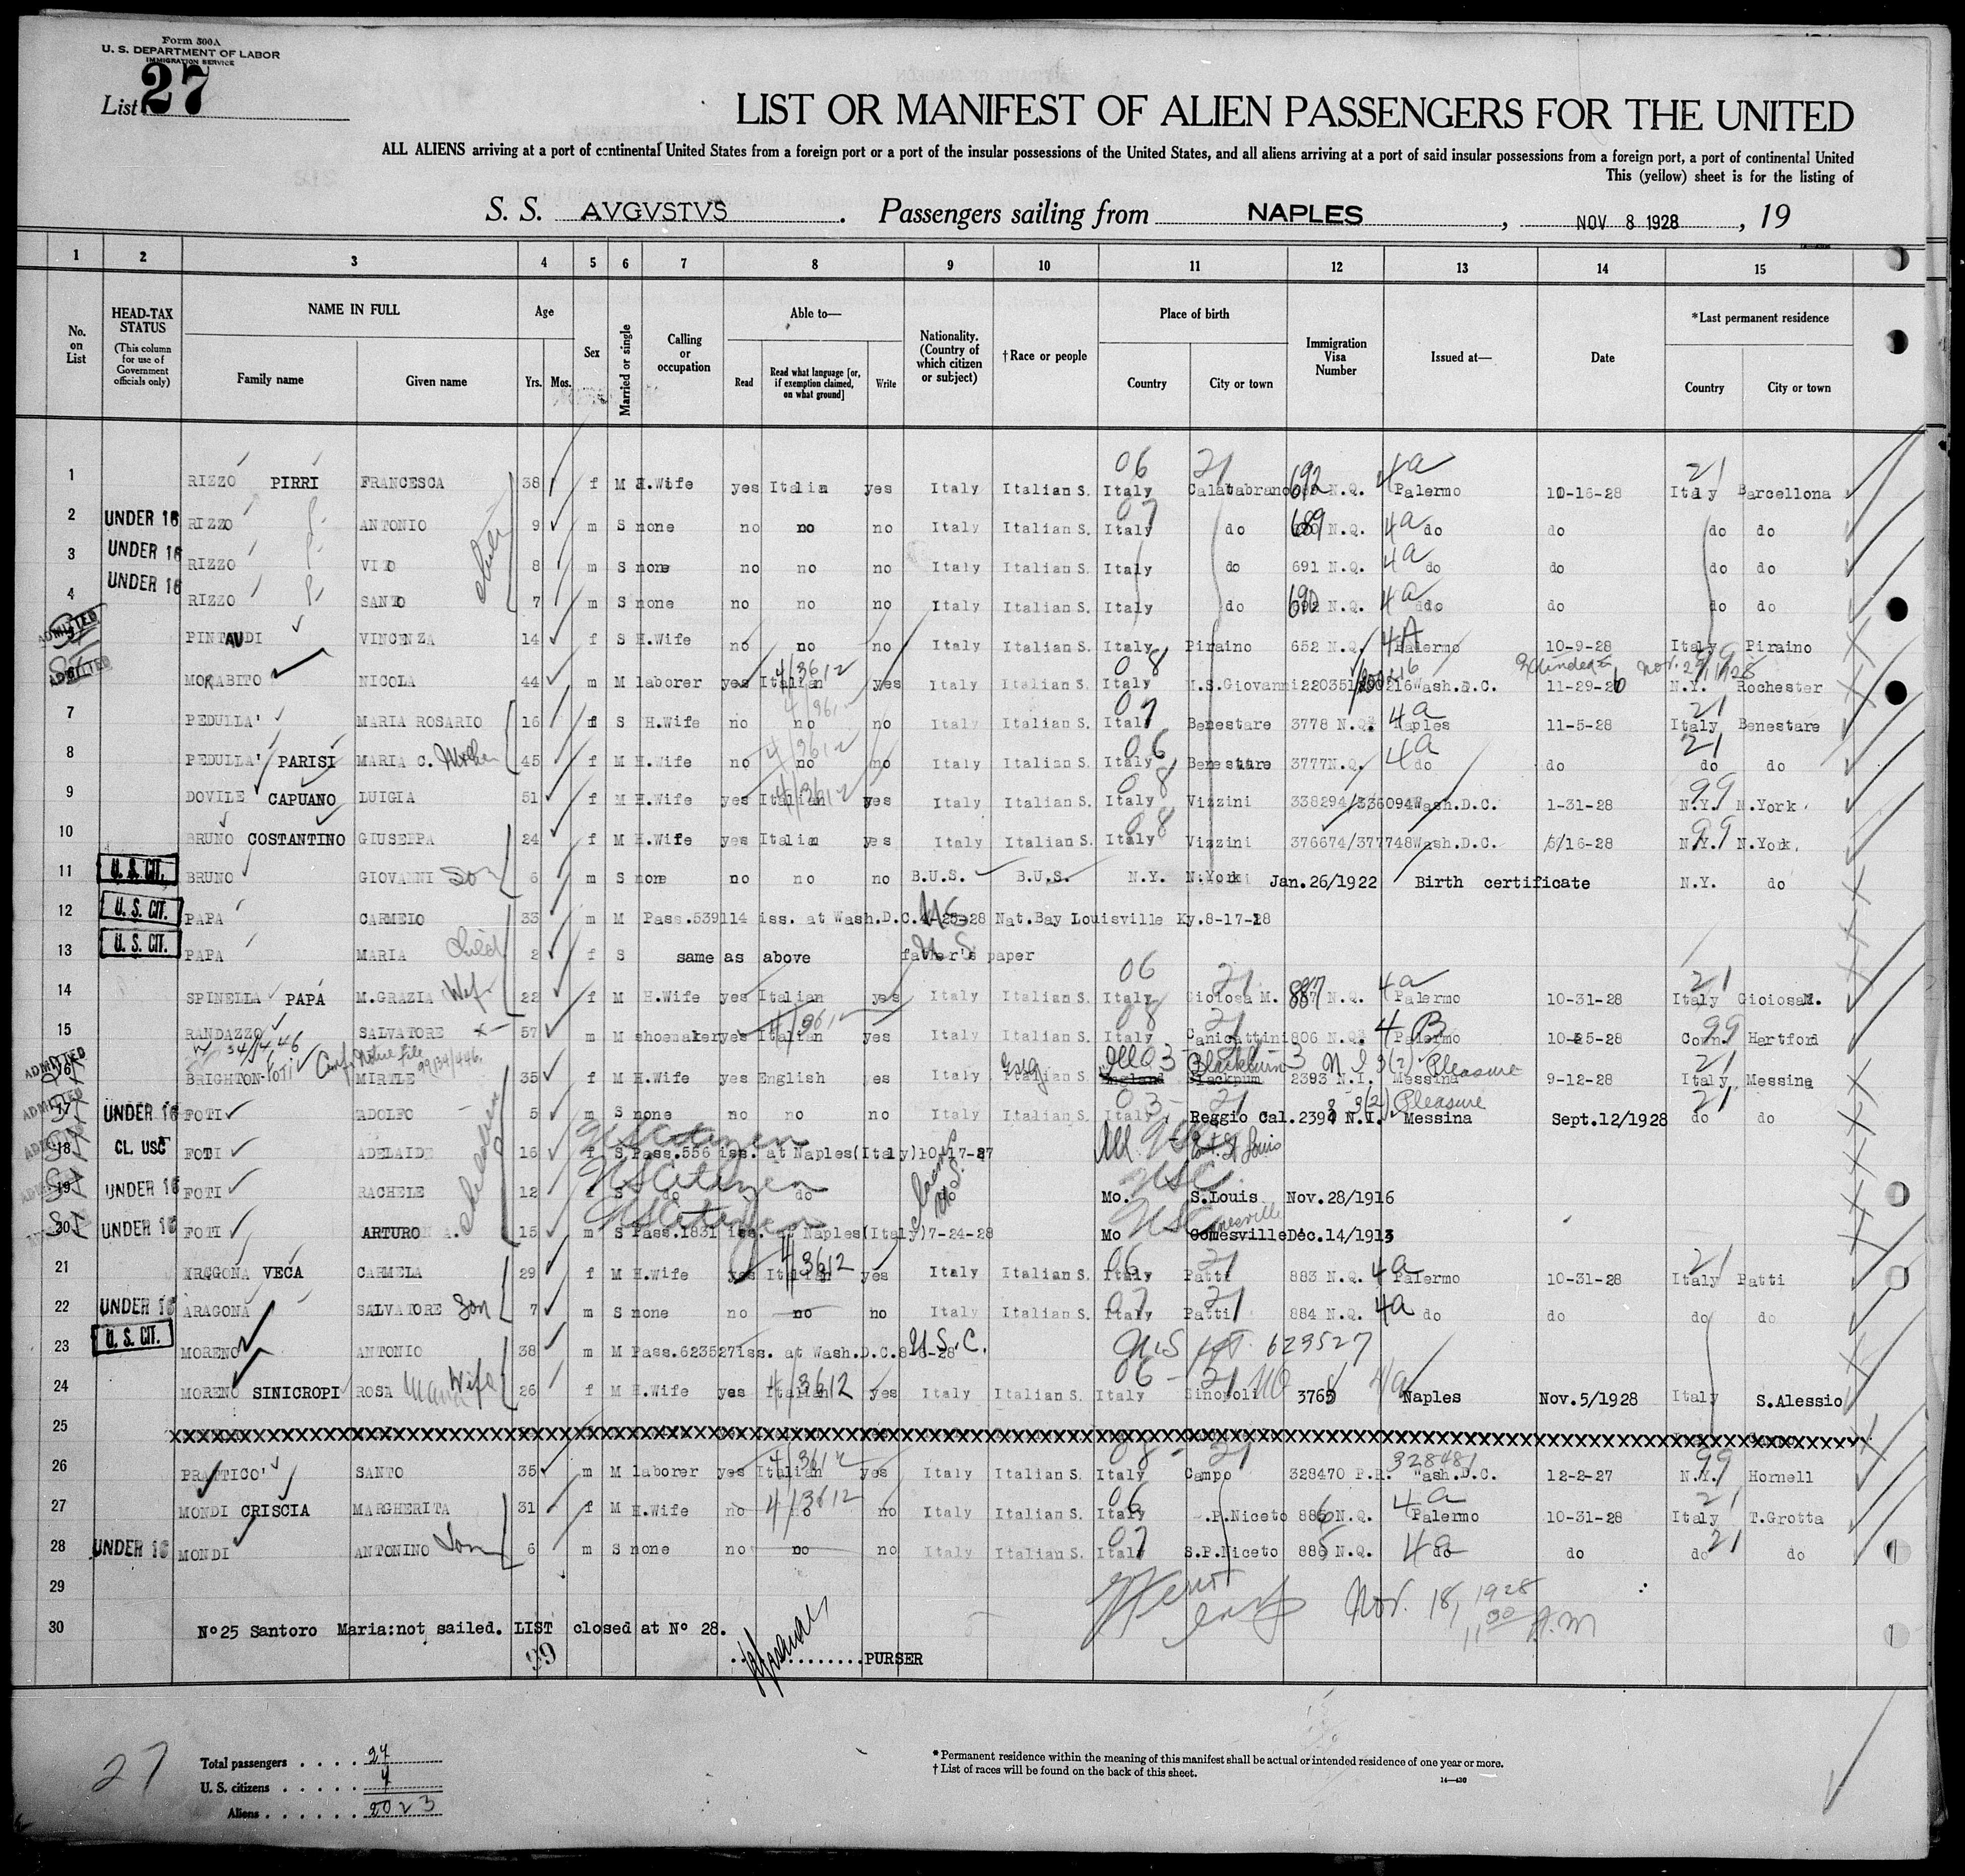 Form 500A
U. S. DEPARTMENT OF LABOR
IMMIGRATION SERVICE
List 27
LIST OR MANIFEST OF ALIEN PASSENGERS FOR THE UNITED
ALL ALIENS arriving at a port of continental United States from a foreign port or a port of the insular possessions of the United States, and all aliens arriving at a port of said insular possessions from a foreign port, a port of continental United
This (yellow) sheet is for the listing of
S. S. AVGVSTVS . Passengers sailing from NAPLES , NOV 8 1928 , 19
1 2 3 4 5 6 7 8 9 10 11 12 13 14 15
No. on List
HEAD-TAX STATUS
(This column for use of Government officials only)
NAME IN FULL
Family name Given name
Age
Yrs. Mos.
Sex
Married or single
Calling or occupation
Able to—
Read
Read what language [or, if exemption claimed, on what ground]
Write
Nationality. (Country of which citizen or subject)
†Race or people
Place of birth
Country City or town
Immigration Visa Number
Issued at—
Date
*Last permanent residence
Country City or town
1 RIZZO PIRRI FRANCESCA 38 f M H.Wife yes Italian yes Italy Italian S. Italy 06 21 692 N.Q. 4a Palermo 10-16-28 21 Italy Barcellona
2 UNDER 16 RIZZO ANTONIO 9 m S none no no no Italy Italian S. Italy 07 do 689 N.Q. 4a do do do do
3 UNDER 16 RIZZO VITO 8 m S none no no no Italy Italian S. Italy do 691 N.Q. 4a do do do do
4 UNDER 16 RIZZO SANTO 7 m S none no no no Italy Italian S. Italy do 690 N.Q. 4a do do do do
ADMITTED PINTAUDI VINCENZA 14 f S H.Wife no no no Italy Italian S. Italy Piraino 652 N.Q. 4A Palermo 10-9-28 Italy Piraino
ADMITTED MORABITO NICOLA 44 m M laborer yes Italian yes Italy Italian S. Italy 08 M.S.Giovanni Wash.D.C. N.Y. 99 Rochester
7 PEDULLA' MARIA ROSARIO 16 f S H.Wife no no no Italy Italian S. Italy 07 Benestare 3778 N.Q. 4a Naples 11-5-28 21 Italy Benestare
8 PEDULLA' PARISI MARIA C. Mother 45 f M H.Wife no no no Italy Italian S. Italy 06 Benestare 3777N.Q. 4a do do 21 do do
9 DOVILE CAPUANO LUIGIA 51 f M H.Wife yes Italian yes Italy Italian S. Italy 08 Vizzini 338294/336094 Wash.D.C. 1-31-28 99 N.Y. N.York
10 BRUNO COSTANTINO GIUSEPPA 24 f M H.Wife yes Italian yes Italy Italian S. Italy 08 Vizzini 376674/377748 Wash.D.C. 5/16-28 99 N.Y. N.York.
11 U. S. CIT. BRUNO GIOVANNI Son 6 m S none no no no B.U.S. B.U.S. N.Y. N.York Jan.26/1922 Birth certificate N.Y. do
12 U. S. CIT. PAPA CARMELO 33 m M Pass.539114 iss. at Wash.D.C.4-25-28 Nat.Bay Louisville Ky.8-17-18
13 U. S. CIT. PAPA MARIA Child 2 f S same as above father's paper
14 SPINELLA PAPA M.GRAZIA Wife 22 f M H.Wife yes Italian yes Italy Italian S. Italy 06 21 Gioiosa M. 887 N.Q. 4a Palermo 10-31-28 21 Italy GioiosaM.
15 RANDAZZO SALVATORE 57 m M shoemaker yes Italian yes Italy Italian S. Italy 08 21 Canicattini 806 N.Q. 4B Palermo 10-25-28 99 Conn. Hartford
ADMITTED 16 BRIGHTON-FOTI MIRTLE 35 f M H.Wife yes English yes Italy Italian S. England Blackburn 2393 N.I. 3(2) Pleasure Messina 9-12-28 21 Italy Messina
17 UNDER 16 FOTI ADOLFO 5 m S none no no no Italy Italian S. Italy 03 21 Reggio Cal. 2394 N.I. 3(2) Pleasure Messina Sept.12/1928 21 do do
18 CL. USC FOTI ADELAIDE 16 f S US Citizen Pass.556 iss. at Naples(Italy)10-17-27 USC
19 UNDER 16 FOTI RACHELE 12 f S US Citizen do do Mo. USC S.Louis Nov.28/1916
20 UNDER 16 FOTI ARTURO 15 m S US Citizen Pass.1831 iss. at Naples(Italy)7-24-28 Mo USC Gomesville Dec.14/1913
21 ARAGONA VECA CARMELA 29 f M H.Wife yes Italian yes Italy Italian S. Italy 06 21 Patti 883 N.Q. 4a Palermo 10-31-28 21 Italy Patti
22 UNDER 16 ARAGONA SALVATORE Son 7 m S none no no no Italy Italian S. Italy 07 21 Patti 884 N.Q. 4a do do do do
23 U. S. CIT. MORENO ANTONIO 38 m M Pass.623527iss. at Wash.D.C.8-6-28 U.S.C. U.S. PPT. 623527
24 MORENO SINICROPI ROSA Wife 26 f M H.Wife yes Italian yes Italy Italian S. Italy 06 21 Sinopoli 3765 4a Naples Nov.5/1928 Italy S.Alessio
25
26 PRATTICO' SANTO 35 m M laborer yes Italian yes Italy Italian S. Italy 08 21 Campo 328470 P.R. 328481 Wash.D.C. 12-2-27 99 N.Y. Hornell
27 MONDI CRISCIA MARGHERITA 31 f M H.Wife no no no Italy Italian S. Italy 06 S.P.Niceto 886 N.Q. 4a Palermo 10-31-28 21 Italy T.Grotta
28 UNDER 16 MONDI ANTONINO Son 6 m S none no no no Italy Italian S. Italy 07 S.P.Niceto 885 N.Q. 4a do do 21 do do
29
Nov. 18, 1928 11 30 A.M
30 No 25 Santoro Maria:not sailed. LIST closed at No 28.
PURSER
27
Total passengers . . . . 27
U. S. citizens . . . . . 4
Aliens . . . . . . 23
* Permanent residence within the meaning of this manifest shall be actual or intended residence of one year or more.
† List of races will be found on the back of this sheet.
14—430